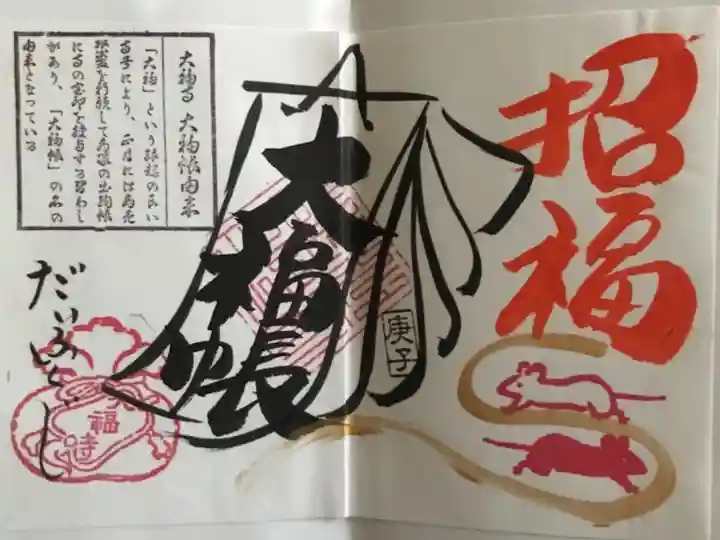 招福
大福帳
庚子
大福寺 大福帳由来
「大福」という縁起のよい
寺号により、正月には商売
繁盛を祈願して商家の出納帳
に寺の宝印を授与する習わし
があり、「大福帳」の名の
由来となっている
だいふくじ
大福寺